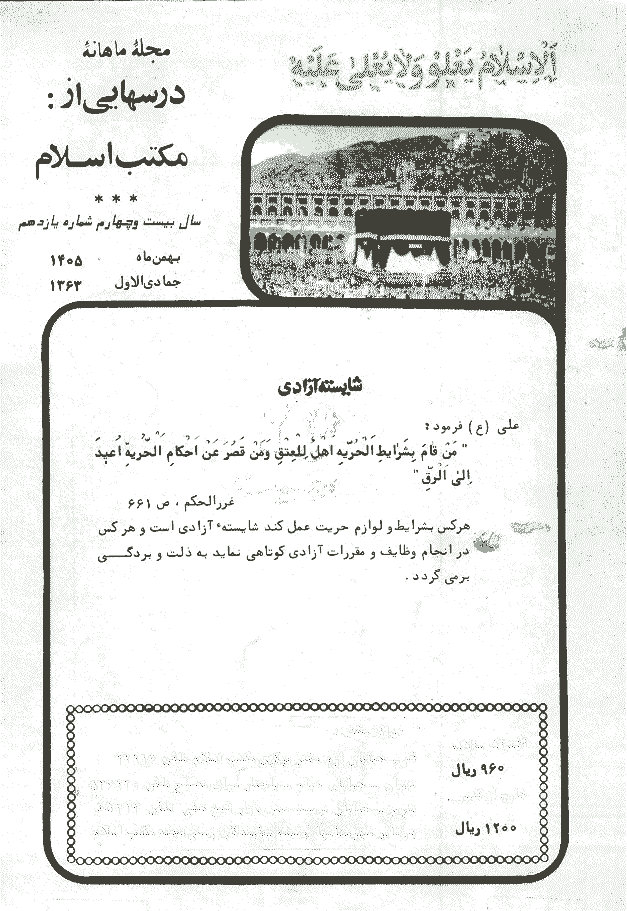 اَلْاِسْلامُ يَعْلُو وَلا يُعْلىٰ عَلَيْهِ
مجلهٔ ماهانهٔ
درسهایی از :
مکتب اسلام
* * *
سال بیست وچهارم شماره یازدهم
بهمن‌ماه ۱۴۰۵
جمادی‌الاول ۱۳۶۳
شایسته آزادی
علی (ع) فرمود :
" مَنْ قامَ بِشَرایطِ اَلْحُرّیهِ اَهْلٌ لِلْعِتْقِ وَمَنْ قَصُرَ عَنْ اَحْکامِ اَلْحُّرِیهِ اُعیدَ
اِلیٰ اَلرِّقِ "
غررالحکم ، ص ۶۶۱
هرکس بشرایط و لوازم حریت عمل کند شایستهٔ آزادی است و هرکس
در انجام وظایف و مقررات آزادی کوتاهی نماید به ذلت و بردگی
برمی گردد .
۹۶۰ ریال
۱۲۰۰ ریال